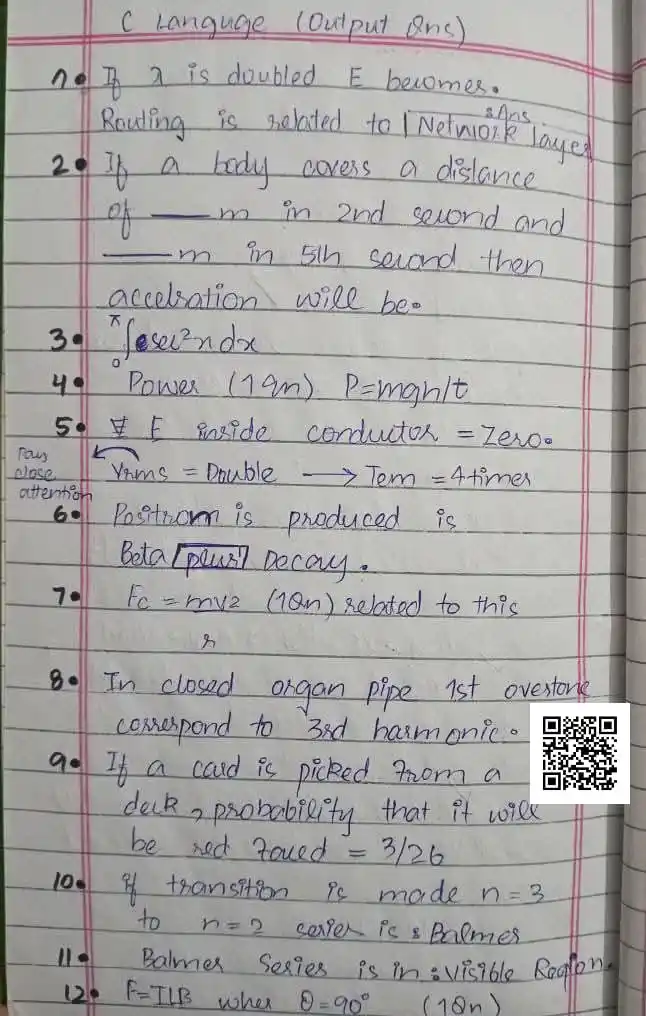 C Languge (Output Qns)
1. If λ is doubled E becomes.
:Ans
Routing is related to Network layer
2. If a body covers a distance
of ___ m in 2nd second and
___ m in 5th second then
accelration will be.
3. π∫0 sec²x dx
4. Power (1qn) P=mgh/t
5. E inside conductor = Zero.
Pay close attention
Vrms = Double → Tem = 4 times
6. Positrom is produced is
Beta plus Decay.
7. Fc = mv2 (1Qn) related to this
r
8. In closed organ pipe 1st overtone
correspond to 3rd harmonic.
9. If a card is picked from a
deck, probability that it will
be red faced = 3/26
10. if transition is made n=3
to n=2 series is : Balmer
11. Balmer Series is in : visible Region.
12. F=ILB wher θ=90° (1Qn)